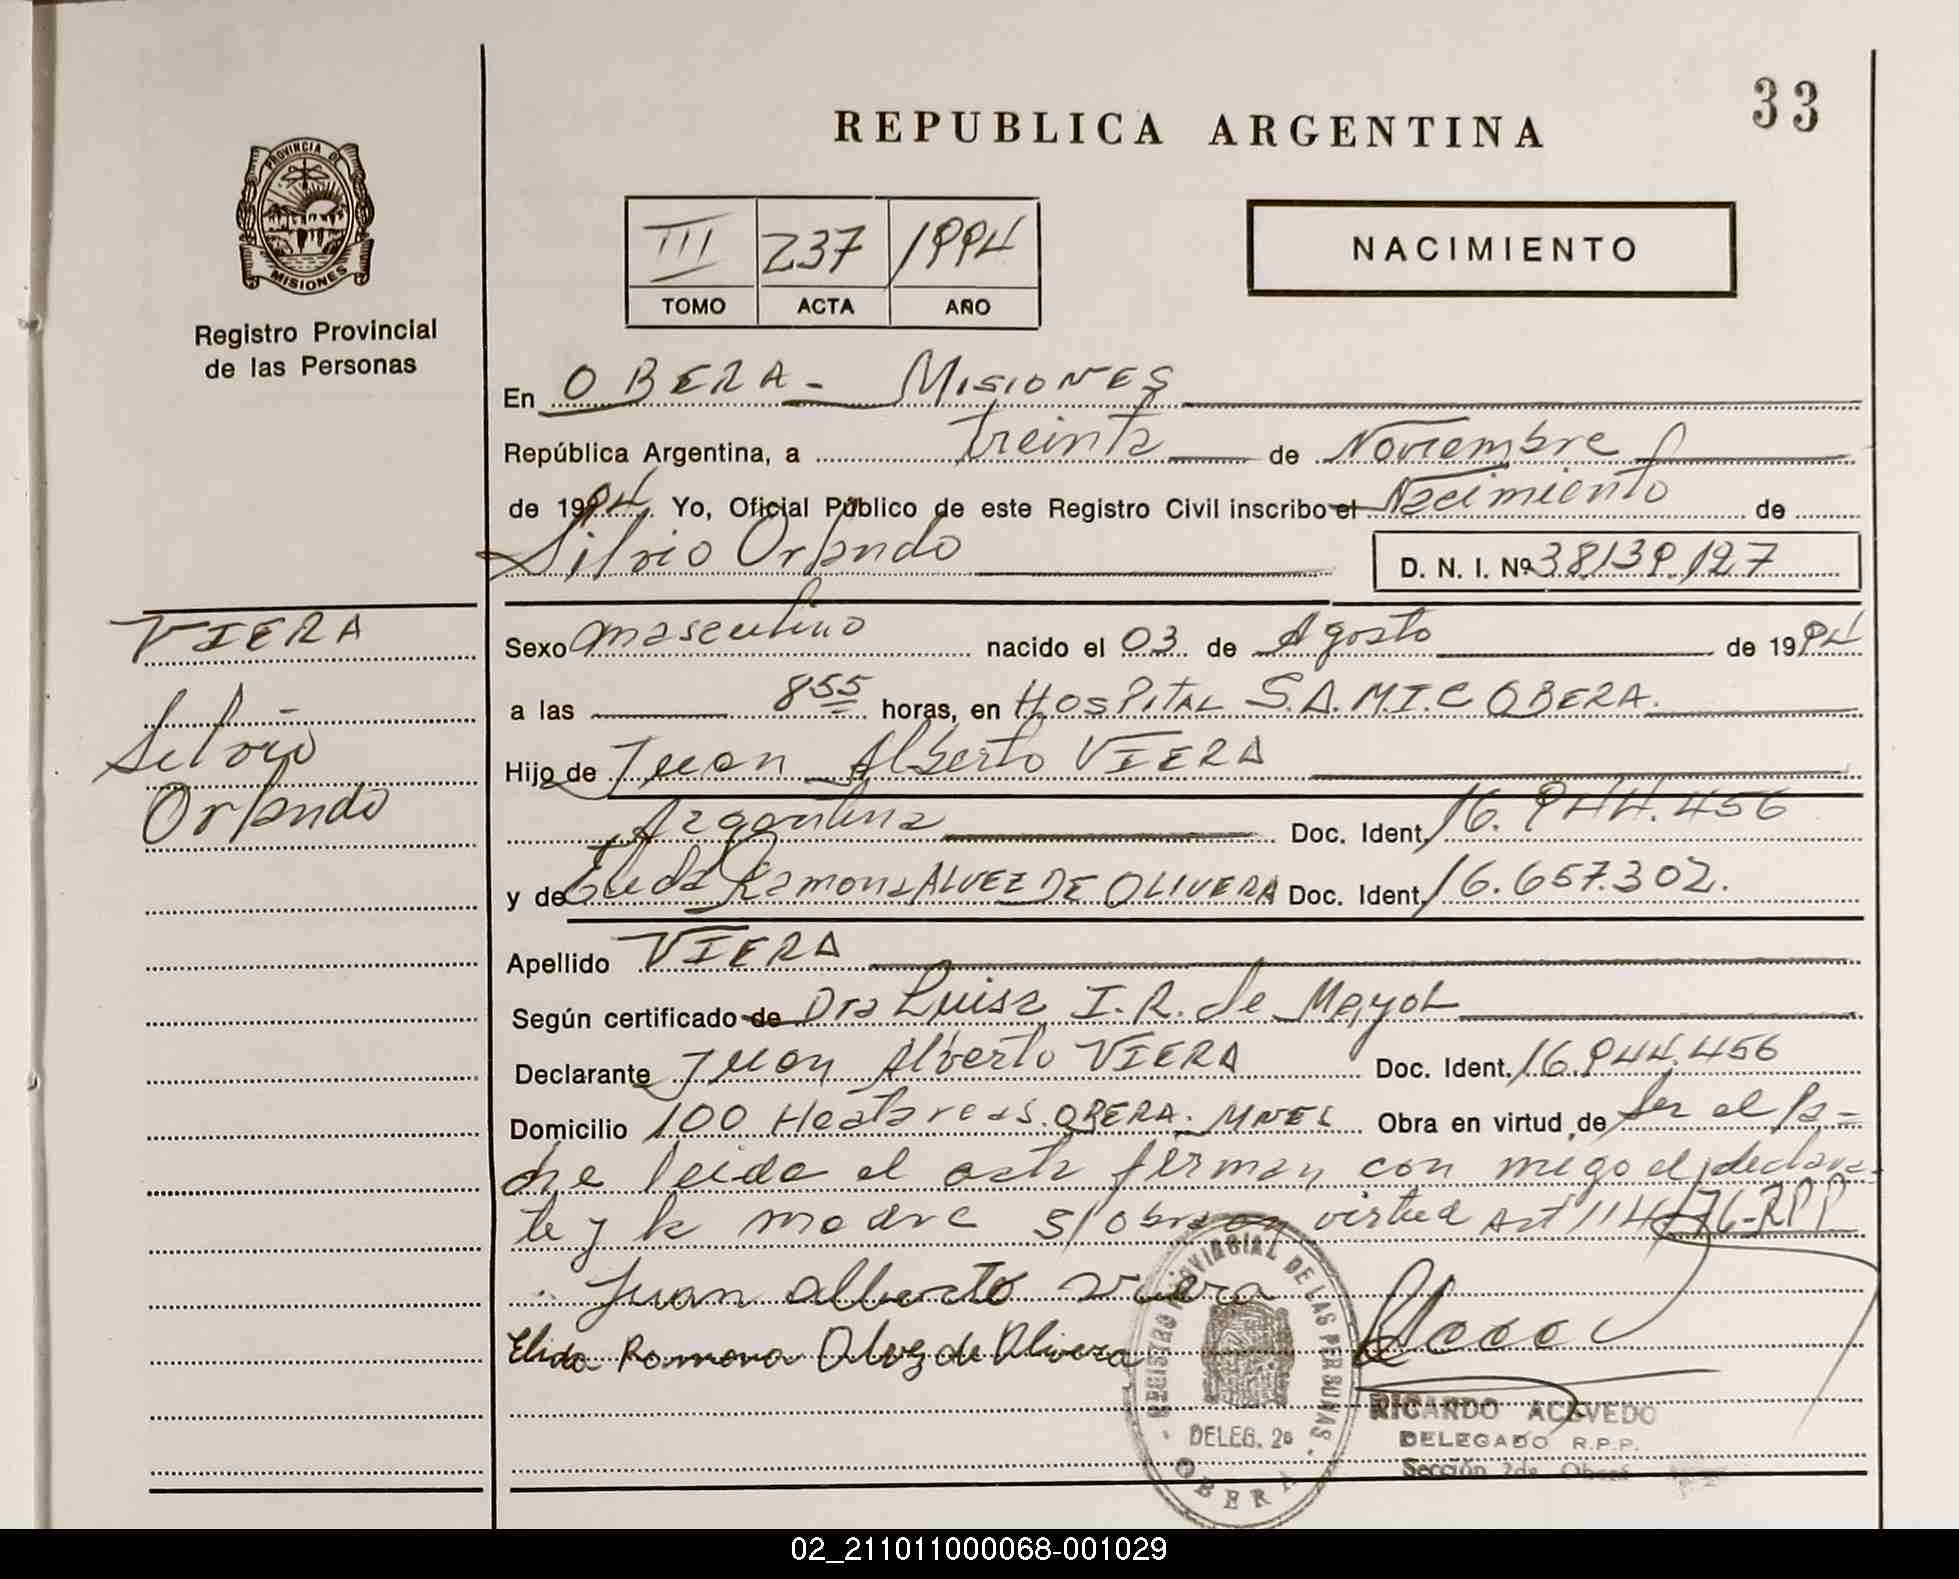 33
REPUBLICA ARGENTINA
PROVINCIA DE
MISIONES
Registro Provincial
de las Personas
III 237 1994
TOMO ACTA AÑO
NACIMIENTO
En OBERA - MISIONES
República Argentina, a treinta de Noviembre
de 1994. Yo, Oficial Público de este Registro Civil inscribo el Nacimiento de
Silvio Orlando
D. N. I. Nº 38139127
VIERA
Silvio
Orlando
Sexo masculino nacido el 03 de Agosto de 1994
a las 8 55 horas, en HOSPITAL S.A.M.I.C OBERA.
Hijo de Juan Alberto VIERA
Argentina Doc. Ident. 16.944.456
y de Elida Ramona ALVEZ DE OLIVERA Doc. Ident. 16.657.302.
Apellido VIERA
Según certificado de Dra Luisa I. R. de Mayol
Declarante Juan Alberto VIERA Doc. Ident. 16.944.456
Domicilio 100 Hectareas. OBERA. MNES Obra en virtud de ser el Pa-
dre leida el acta firman con migo el declaran-
te y la madre s/obra en virtud Art 114/76-RPP
Juan alberto viera
Elida Ramona Alvez de Olivera
REGISTRO PROVINCIAL DE LAS PERSONAS
DELEG. 2a
OBERA
RICARDO ACEVEDO
DELEGADO R.P.P.
Sección 2da Oberá
02_211011000068-001029